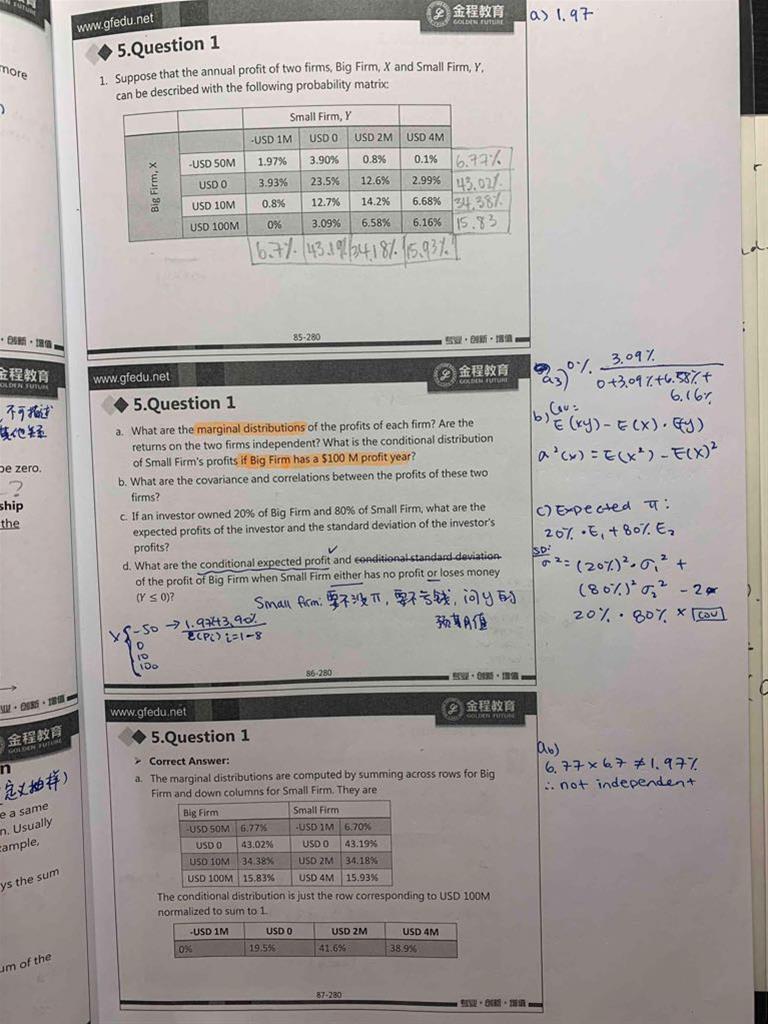 more
www.gfedu.net
金程教育
GOLDEN FUTURE
a) 1.97
5.Question 1
1. Suppose that the annual profit of two firms, Big Firm, X and Small Firm, Y,
can be described with the following probability matrix:
Small Firm, Y
-USD 1M USD 0 USD 2M USD 4M
Big Firm, X
-USD 50M 1.97% 3.90% 0.8% 0.1% 6.77%
USD 0 3.93% 23.5% 12.6% 2.99% 43.02%
USD 10M 0.8% 12.7% 14.2% 6.68% 34.38%
USD 100M 0% 3.09% 6.58% 6.16% 15.83
6.7% 43.19% 34.18% 15.93%
85-280
专业·创新·增值
·创新·增值
金程教育
GOLDEN FUTURE
不可描述
be zero.
?
ship
the
www.gfedu.net
金程教育
GOLDEN FUTURE
5.Question 1
a. What are the marginal distributions of the profits of each firm? Are the
returns on the two firms independent? What is the conditional distribution
of Small Firm's profits if Big Firm has a $100 M profit year?
b. What are the covariance and correlations between the profits of these two
firms?
c. If an investor owned 20% of Big Firm and 80% of Small Firm, what are the
expected profits of the investor and the standard deviation of the investor's
profits?
d. What are the conditional expected profit and conditional standard deviation
of the profit of Big Firm when Small Firm either has no profit or loses money
(Y ≤ 0)?
Small firm: 要不没π, 要不亏钱, 问y的
预期值
X { -50 → 1.97+3.90% / Σ(Pi) i=1-8
0
10
100
86-280
专业·创新·增值
a3) 0%. 3.09% / 0+3.09%+6.58%+
6.16%
b) Cov:
E(xy) - E(x) · E(y)
a²(x) = E(x²) - E(x)²
c) Expected π:
20% · E₁ + 80% E₂
SD:
σ² = (20%)² · σ₁² +
(80%)² σ₂² - 2
20% · 80% × cov
业·创新·增值
金程教育
GOLDEN FUTURE
n
定义抽样)
e a same
n. Usually
ample,
ys the sum
um of the
www.gfedu.net
金程教育
GOLDEN FUTURE
5.Question 1
Correct Answer:
a. The marginal distributions are computed by summing across rows for Big
Firm and down columns for Small Firm. They are
Big Firm Small Firm
-USD 50M 6.77% -USD 1M 6.70%
USD 0 43.02% USD 0 43.19%
USD 10M 34.38% USD 2M 34.18%
USD 100M 15.83% USD 4M 15.93%
The conditional distribution is just the row corresponding to USD 100M
normalized to sum to 1.
-USD 1M USD 0 USD 2M USD 4M
0% 19.5% 41.6% 38.9%
87-280
专业·创新·增值
ab)
6.77 × 6.7 ≠ 1.97%
∴ not independent